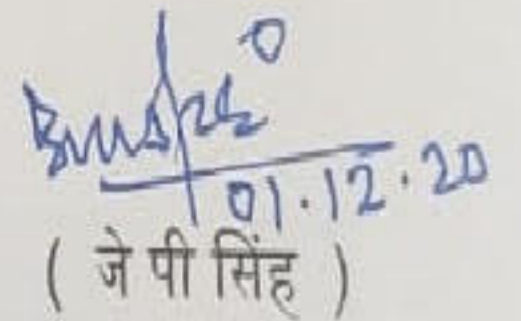 01.12.20
( जे पी सिंह )